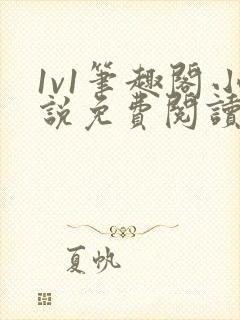 1v1筆趣閣小
說免費閱讀
夏帆